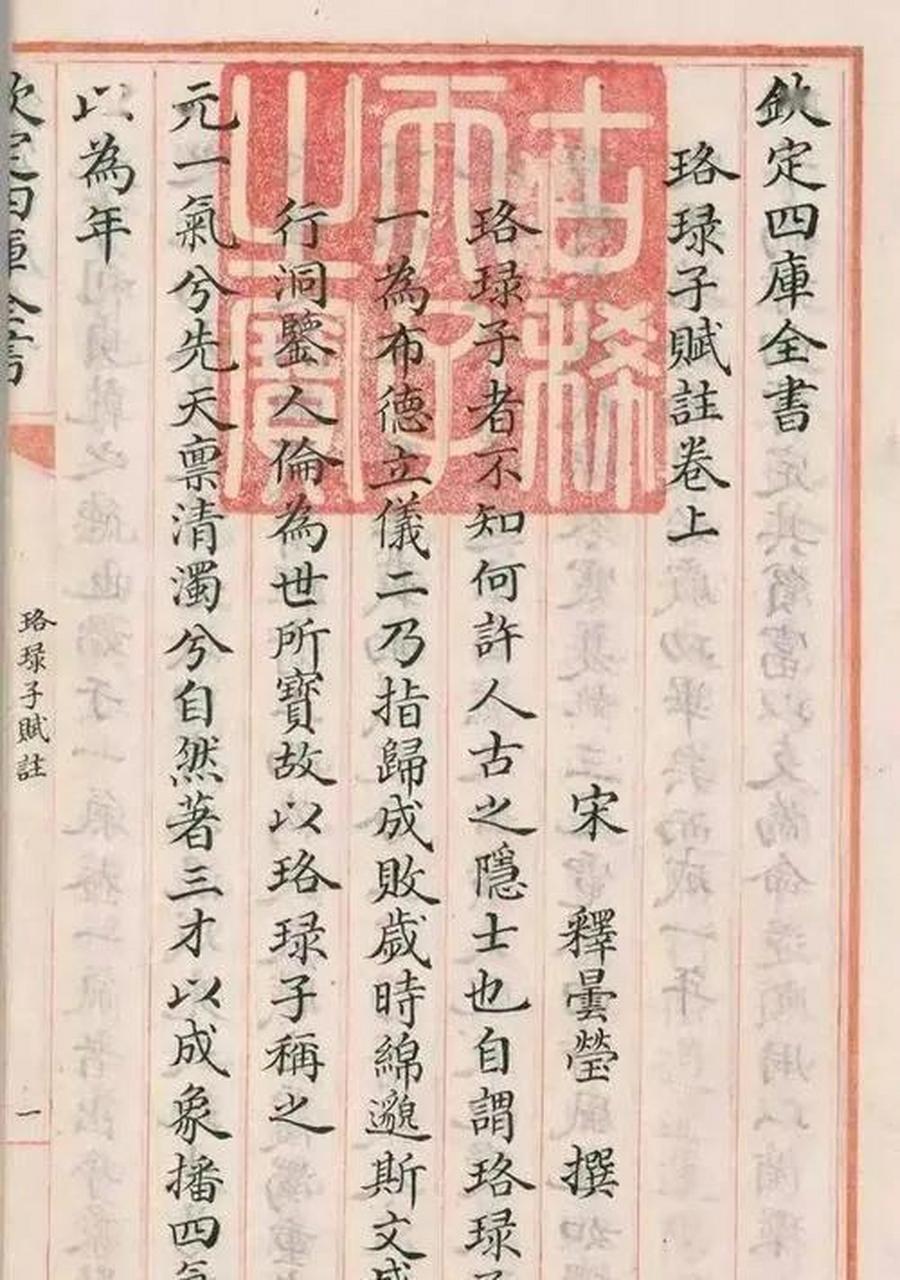 欽定四庫全書
珞琭子賦註卷上
宋 釋曇瑩 撰
珞琭子者不知何許人古之隱士也自謂珞琭子
一為布德立儀二乃指歸成敗歲時綿邈斯文
行洞鑒人倫為世所寶故以珞琭子稱之
元一氣兮先天禀清濁兮自然著三才以成象播四氣
以為年
欽定四庫全書
珞琭子賦註
一
古稀
天子
之寶